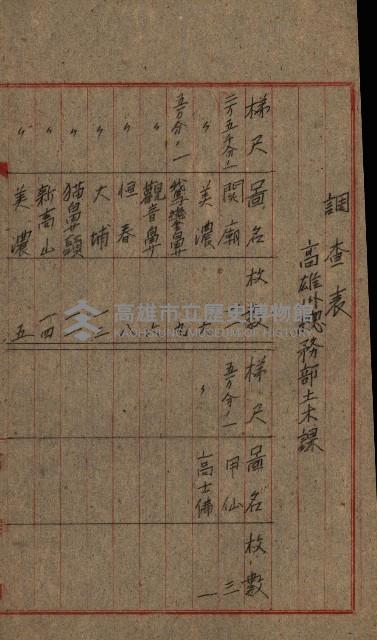 調查表
高雄州總務部土木課
梯尺 圖名 枚數 梯尺 圖名 枚數
二万五千分ノ一 関廟 五万分ノ一 甲仙 三
〃 美濃 六 〃 高士佛 一
五万分ノ一 鵞鑾鼻 九
〃 觀音鼻 七
〃 恒春 八
〃 大埔 一三
〃 猫鼻頭
〃 新高山 一四
〃 美濃 五
高雄市立歷史博物館
KAOHSIUNG MUSEUM OF HISTORY